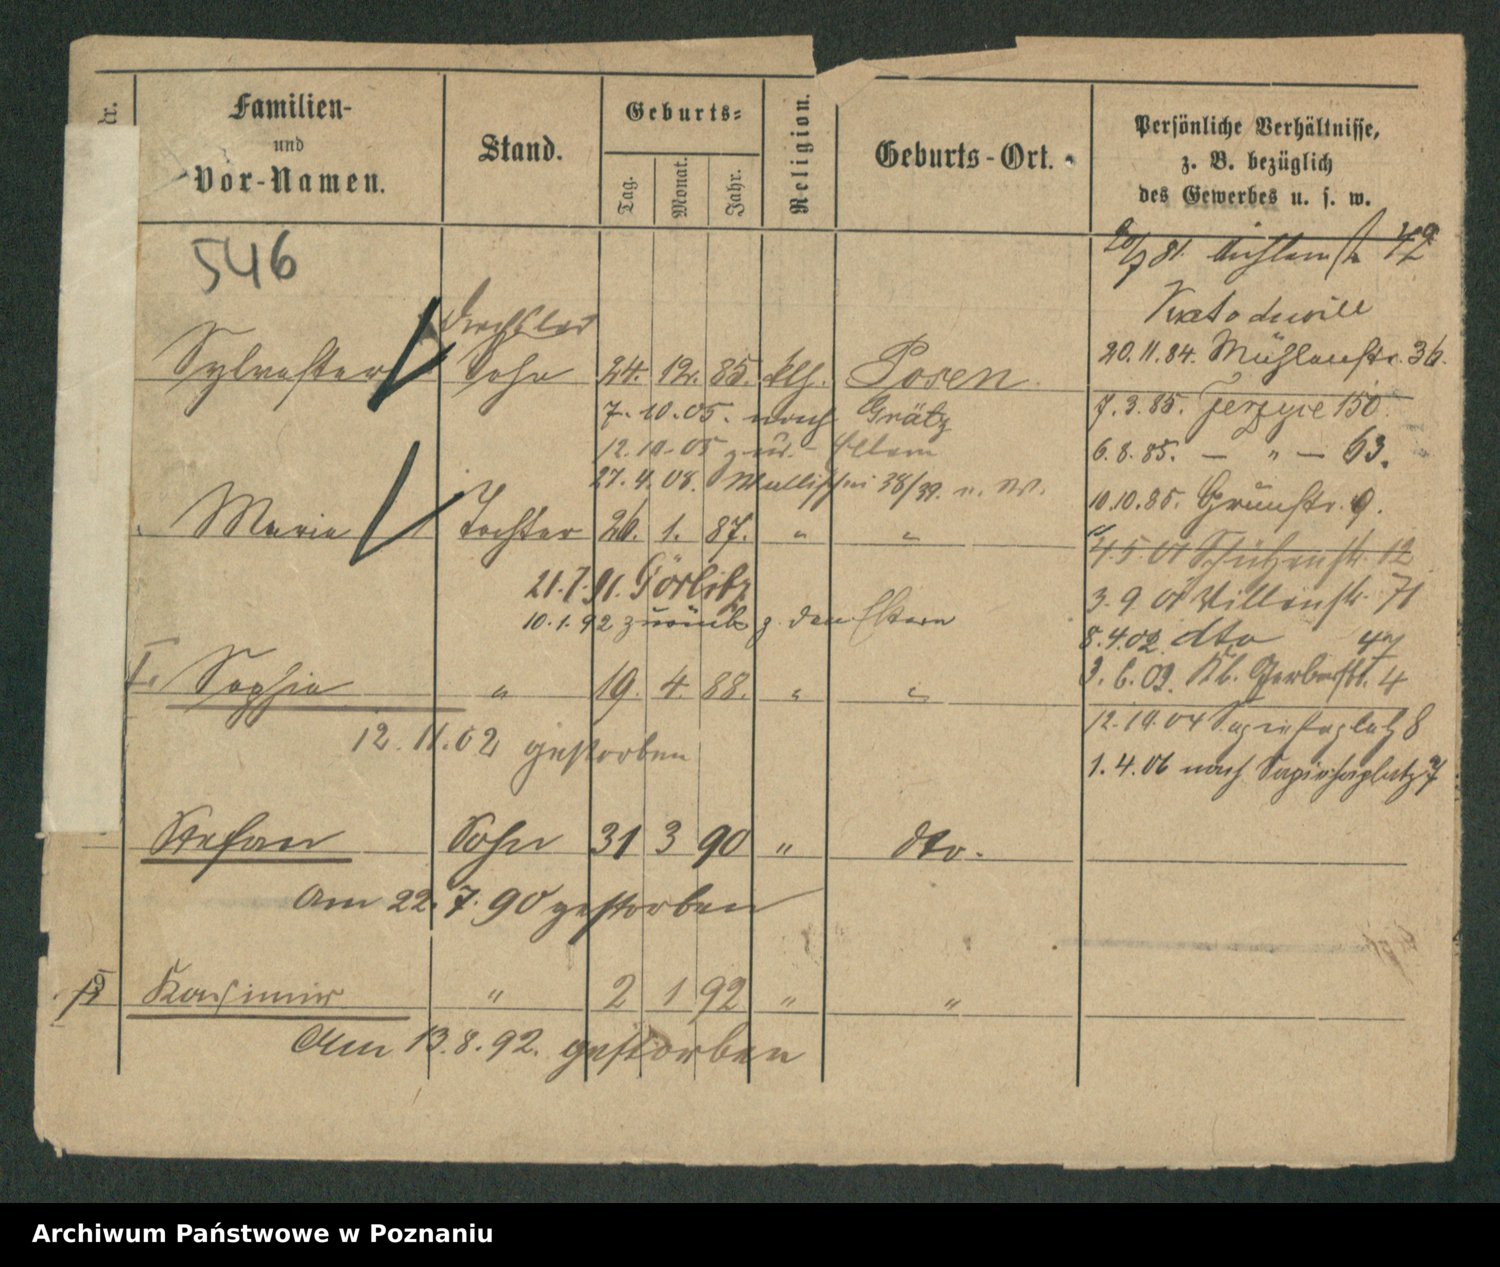 Nr.
Familien-
und
Vor-Namen.
Stand.
Geburts-
Tag.
Monat.
Jahr.
Religion.
Geburts-Ort.
Persönliche Verhältnisse,
z. B. bezüglich
des Gewerbes u. s. w.
546
Sylvester Sohn 24. 12. 85. kth. Posen
7.10.05. nach Grätz
12.10.05 zur. Eltern
27.4.08. 38/39.
Marie Tochter 26. 1. 87. " "
21.7.91. Görlitz
10.1.92 zurück z. den Eltern
Sophia " 19. 4 88. " "
12.11.02 gestorben
Stefan Sohn 31 3 90 " dto.
Am 22.7.90 gestorben
Kasimir " 2 1 92 " "
Am 13.8.92. gestorben
20.11.84. Mühlenstr. 36.
7.3.85. Jerzyce 150.
6.8.85. — " — 63.
10.10.85. Grünstr. 9.
4.5 01 Schützenstr. 12
3.9 01 Villenstr. 71
8.4.02 dto 47
3.6.03. Kl. Gerberstr. 4
12.10.04 Sapiehaplatz 8
1.4.06 nach Sapiehaplatz 7
Archiwum Państwowe w Poznaniu